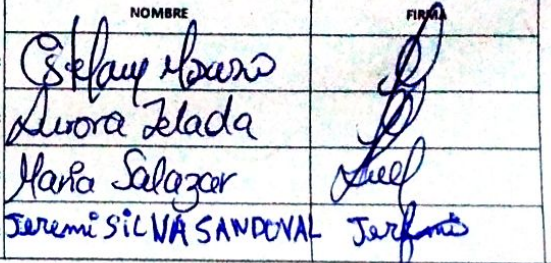 NOMBRE FIRMA
Estefany Moreno
Aurora Zelada
Maria Salazar
Jeremi SILVA SANDOVAL Jeremi